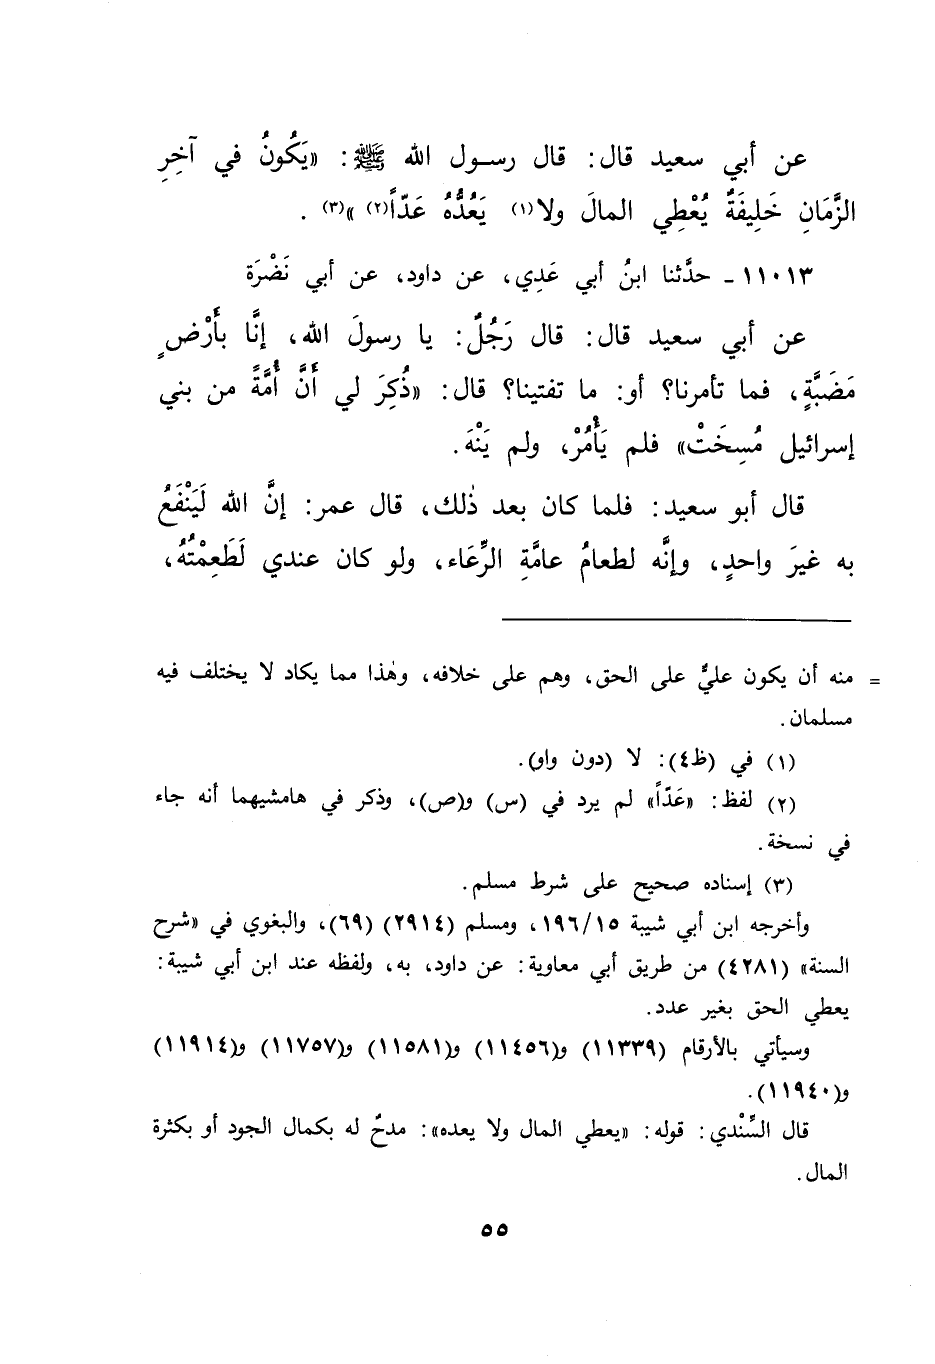 عن أبي سعيد قال: قال رسول الله ﷺ: «يَكُونُ في آخِرِ
الزَّمَانِ خَلِيفَةٌ يُعْطِي المالَ ولا(١) يَعُدُّهُ عَدّاً(٢)»(٣).
١١٠١٣ - حدَّثنا ابنُ أبي عَدِي، عن داود، عن أبي نَضْرَة
عن أبي سعيد قال: قال رَجُلٌ: يا رسولَ الله، إنَّا بأَرْضٍ
مَضَبَّةٍ، فما تأمرنا؟ أو: ما تفتينا؟ قال: «ذُكِرَ لي أَنَّ أُمَّةً من بني
إسرائيل مُسِخَتْ» فلم يَأْمُرْ، ولم يَنْهَ.
قال أبو سعيد: فلما كان بعد ذٰلك، قال عمر: إنَّ الله لَيَنْفَعُ
به غيرَ واحدٍ، وإنَّه لطعامُ عامَّةِ الرِّعَاء، ولو كان عندي لَطَعِمْتُهُ،
= منه أن يكون عليٌّ على الحق، وهم على خلافه، وهٰذا مما يكاد لا يختلف فيه
مسلمان.
(١) في (ظ٤): لا (دون واو).
(٢) لفظ: «عَدّاً» لم يرد في (س) و(ص)، وذكر في هامشيهما أنه جاء
في نسخة.
(٣) إسناده صحيح على شرط مسلم.
وأخرجه ابن أبي شيبة ١٩٦/١٥، ومسلم (٢٩١٤) (٦٩)، والبغوي في «شرح
السنة» (٤٢٨١) من طريق أبي معاوية: عن داود، به، ولفظه عند ابن أبي شيبة:
يعطي الحق بغير عدد.
وسيأتي بالأرقام (١١٣٣٩) و(١١٤٥٦) و(١١٥٨١) و(١١٧٥٧) و(١١٩١٤)
و(١١٩٤٠).
قال السِّنْدي: قوله: «يعطي المال ولا يعده»: مدحٌ له بكمال الجود أو بكثرة
المال.
٥٥